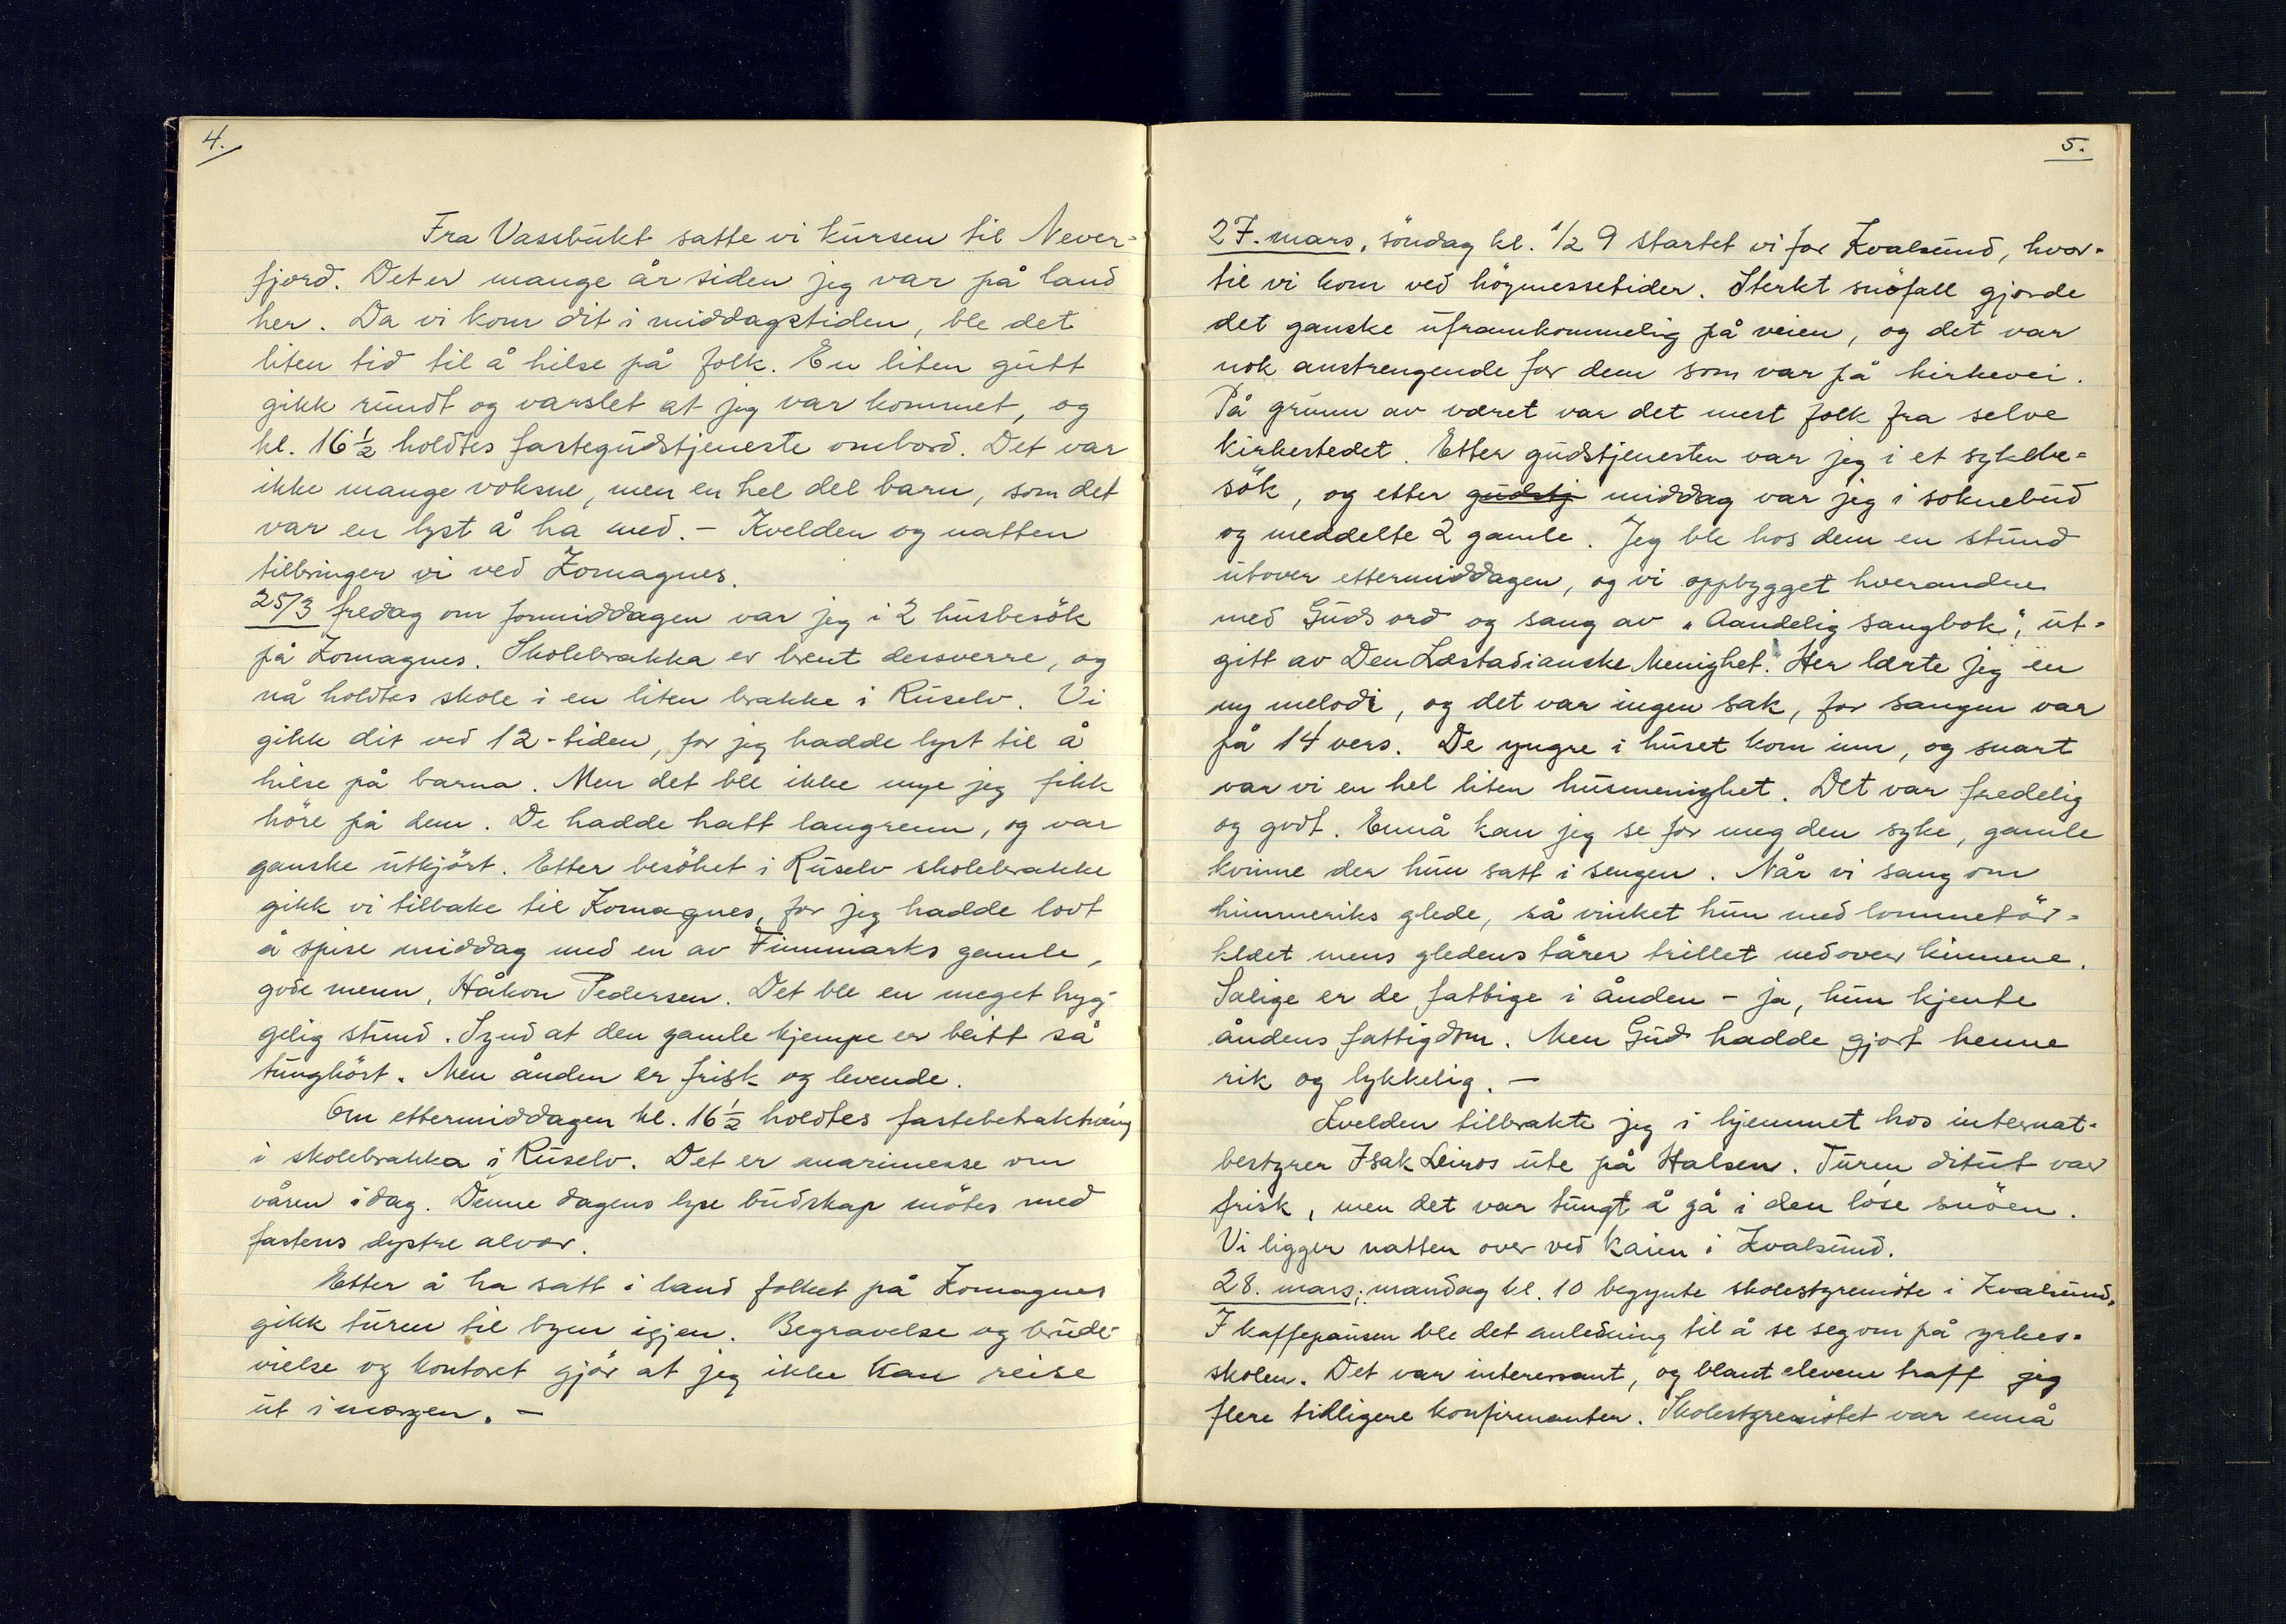 4.
Fra Vassbukt satte vi kursen til Never-
fjord. Det er mange år siden jeg var på land
her. Da vi kom dit i middagstiden, ble det
liten tid til å hilse på folk. En liten gutt
gikk rundt og varslet at jeg var kommet, og
kl. 16½ holdtes fastegudstjeneste ombord. Det var
ikke mange voksne, men en hel del barn, som det
var en lyst å ha med. - Kvelden og natten
tilbringer vi ved Komagnes.
25/3 fredag om formiddagen var jeg i 2 husbesök
på Komagnes. Skolebrakka er brent dessverre, og
nå holdtes skole i en liten brakke i Ruselv. Vi
gikk dit ved 12-tiden, for jeg hadde lyst til å
hilse på barna. Men det ble ikke mye jeg fikk
höre på dem. De hadde hatt langrenn, og var
ganske utkjört. Etter besöket i Ruselv skolebrakke
gikk vi tilbake til Komagnes, for jeg hadde lovt
å spise middag med en av Finnmarks gamle,
gode menn, Håkon Pedersen. Det ble en meget hyg-
gelig stund. Synd at den gamle kjempe er blitt så
tunghört. Men ånden er frisk og levende.
Om ettermiddagen kl. 16½ holdtes fastebetraktning
i skolebrakka i Ruselv. Det er marimesse om
våren idag. Denne dagens lyse budskap mötes med
fastens dystre alvor.
Etter å ha satt i land folket på Komagnes
gikk turen til byen igjen. Begravelse og brude-
vielse og kontoret gjör at jeg ikke kan reise
ut imorgen. -
5.
27. mars, söndag kl. 1/2 9 startet vi for Kvalsund, hvor-
til vi kom ved högmessetider. Sterkt snöfall gjorde
det ganske uframkommelig på veien, og det var
nok anstrengende for dem som var på kirkevei.
På grunn av været var det mest folk fra selve
kirkestedet. Etter gudstjenesten var jeg i et sykebe-
sök, og etter gudstj middag var jeg i soknebud
og meddelte 2 gamle. Jeg ble hos dem en stund
utover ettermiddagen, og vi oppbygget hverandre
med Guds ord og sang av "Aandelig sangbok", ut-
gitt av Den Læstadianske Menighet. Her lærte jeg en
ny melodi, og det var ingen sak, for sangen var
på 14 vers. De yngre i huset kom inn, og snart
var vi en hel liten husmenighet. Det var fredelig
og godt. Ennå kan jeg se for meg den syke, gamle
kvinne der hun satt i sengen. Når vi sang om
himmeriks glede, så vinket hun med lommetör-
kleet mens gledens tårer trillet nedover kinnene.
Salige er de fattige i ånden - ja, hun kjente
åndens fattigdom. Men Gud hadde gjort henne
rik og lykkelig. -
Kvelden tilbrakte jeg i hjemmet hos internat-
bestyrer Isak Leiros ute på Halsen. Turen ditut var
frisk, men det var tungt å gå i den löse snöen.
Vi ligger natten over ved kaien i Kvalsund.
28. mars, mandag kl. 10 begynte skolestyremöte i Kvalsund.
I kaffepausen ble det anledning til å se seg om på yrkes-
skolen. Det var interessant, og blant elevene traff jeg
flere tidligere konfirmanter. Skolestyremötet var ennå